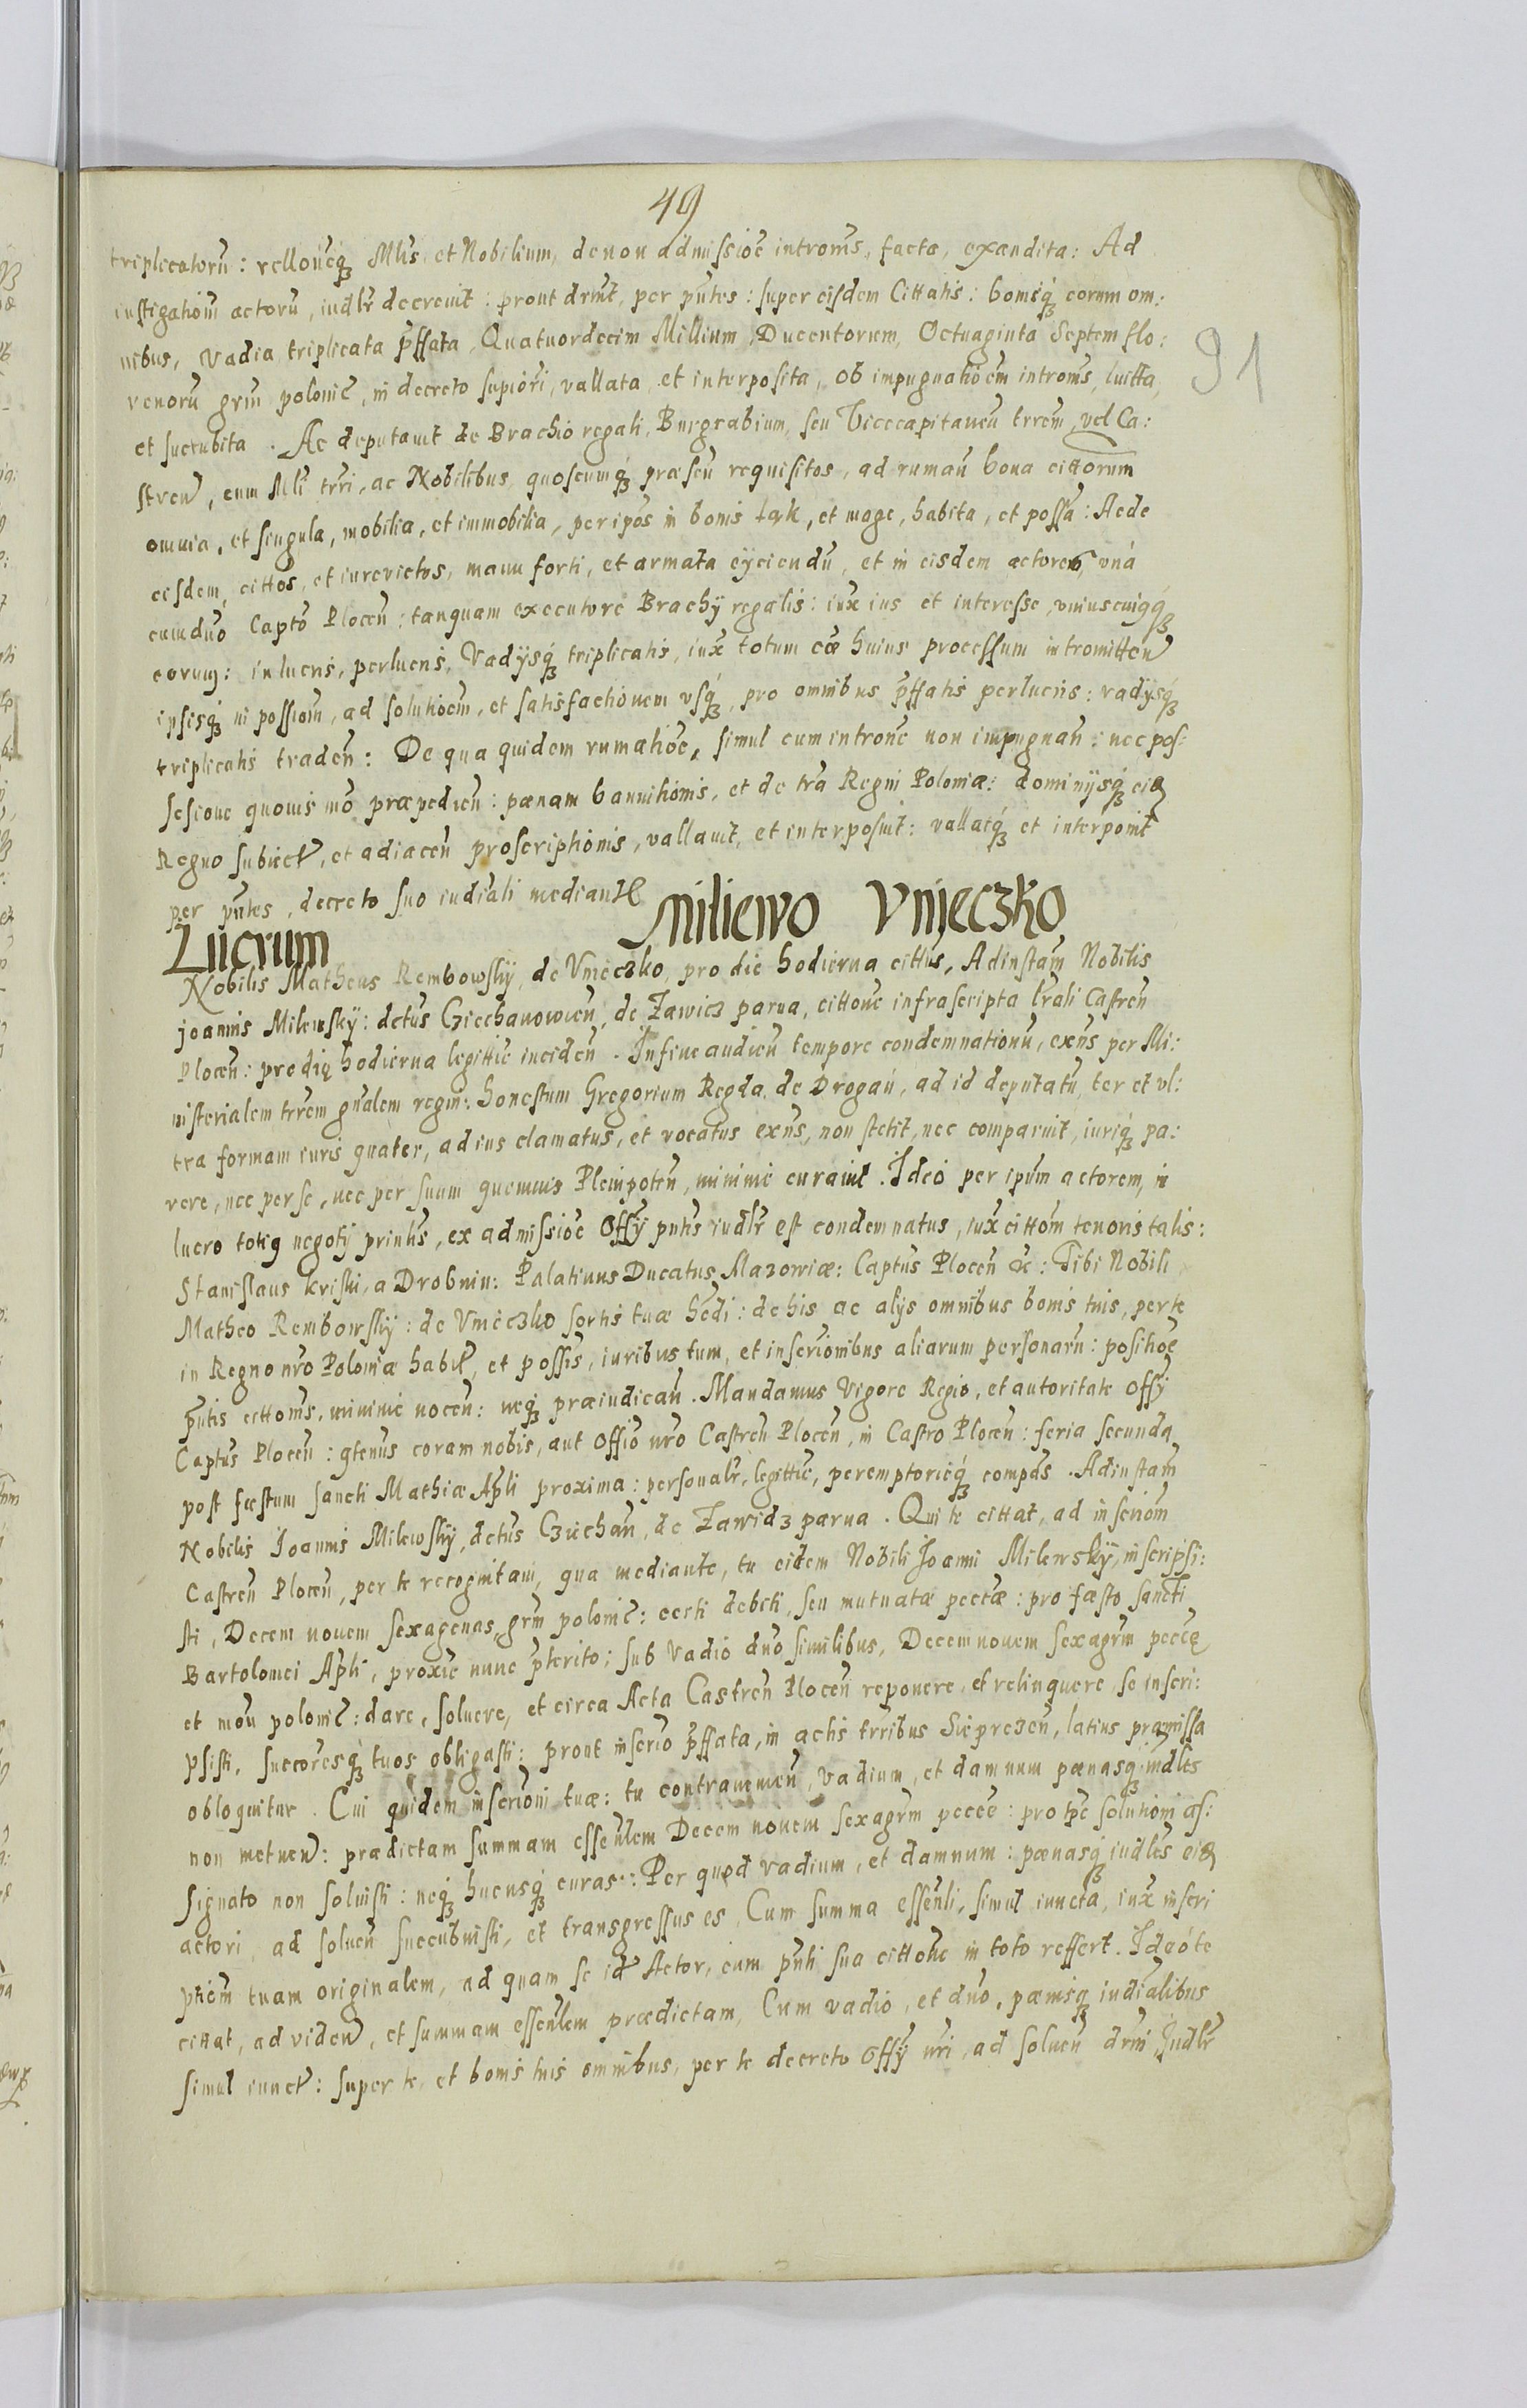 49
91
triplicatorũ: relloneq₃ Mlis et Nobilium, de non admissioē introms, facta, exandita: Ad
instigationi actorũ, iudlr decrevit: prout drnit, per pñtes: super eisdem Cittatis: bonisq₃ eorum om:
nibus, Vadia triplicata p̃ffata, Quatuordecim Millium, Ducentorum, Octuaginta Septem flo:
renorũ grm̃ polonic, in decreto superiori, vallata et interposita, ob impugnatioem introms, luitta,
et succubita. Ac deputavit de Brachio regali, Burgrabium, seu Vicecapitaneũ trrem, vel Ca:
stren, cum Mli trri, ac Nobilibus quoscumq₃ præseñ requisitos, ad rumañ bona cittorum
omnia, et singula, mobilia, et immobilia, per ipos in bonis tak, et mage, habita, et possa: Ac de
eisdem, cittos, et iurevictos, manu forti, et armata eÿciendũ, et in eisdem actores, unà
cum dño Capto Plocen̄: tanquam executore Brachÿ regalis: iux̃ ius et interesse, uniuscuiqq₃
eorum: in lucris, perlucris, Vadÿsq₃ triplicatis, iux̃ totum cæ huius processum intromitten
ipsisq₃ in possioni, ad solutioem, et satisfactionem usq₃, pro omnibus p̃ffatis perlucris: vadÿsq₃
triplicatis traden̄: De qua quidem rumatioe, simul cum intronē non impugnañ: nec pos:
sesione quovis mõ præpedien̄: pænam bannitionis, et de tra Regni Poloniæ: dominÿsq₃ eid
Regno subiect, et adiacen̄ proscriptionis, vallavit, et interposuit: vallatq₃ et interponit
per pñtes, decreto suo iudiali mediante
Lucrum Miliewo Vnieczko
Nobilis Matheus Rembowskÿ, de Vnieczko, pro die hodierna cittus, Ad instam Nobilis
Joannis Milewskÿ: dctus Cziechanowien̄, de Zawicz parva, cittone infrascripta trali Castren̄
Plocen̄: pro diẹ hodierna legittie inciden̄. In fine audien̄ tempore condemnationũ, exñs per Mi:
nisterialem trrem gñalem regni: honestum Gregorium Regda, de Drogañ, ad id deputatũ, ter et ul:
tra formam iuris quater, ad ius clamatus, et vocatus exñs, non stetit, nec comparuit, iuriq₃ pa:
rere, nec per se, nec per suum quemvis Plenipoten̄, minime curavit. Ideò per ipum actorem, in
lucro totiq negotÿ printis, ex admissioe Offÿ pñtis iudlr est condemnatus, iux̃ cittom tenoris talis:
Stanislaus Kriski, a Drobnin: Palatinus Ducatus Mazowiæ: Captus Plocen̄ &c: Tibi Nobili
Matheo Rembowskÿ: de Vnieczko sortis tuæ hedi: de his ac alÿs omnibus bonis tuis, per te
in Regno nro Poloniæ habit, et possis, iuribus tum, et inscrionibus aliarum personarũ: positioe
pñtis cittonis, minime nocen̄: neq₃ præiudicañ. Mandamus Vigore Regio, et autoritate Offÿ
Captus Plocen̄: qtenus coram nobis, aut Offio nro Castren̄ Plocen̄, in Castro Plocen̄: feria secunda
post festum Sancti Mathiæ Apli proxima: personalr, legittie, peremptorieq₃ compãs. Ad instam
Nobilis Joannis Milewskÿ, dctus Cziechañ, de Zawidz parva. Qui te cittat, ad inscriom
Castren̄ Plocen̄, per te recognitam, qua mediante, tu eidem Nobili Joanni Milewskÿ, inscripsi:
sti, Decem novem Sexagenas, grm̃ polonic: certi debiti, seu mutuatæ pectæ: pro fæsto Sancti
Bartolomei Apli, proxie nunc p̃terito; sub Vadio dno similibus, Decem novem sexagrm peccę
et mon polonic: dare, solvere, et circa Acta Castren̄ Plocen̄ reponere, et relinquere, se inscri:
psisti, succoresq₃ tuos obligasti: prout inscrio p̃ffata, in actis trribus Sieprezen̄, latius præmissa
obloquitur. Cui quidem inscrioni tuæ: tu contravenien̄, Vadium, et damnum pænasq₃ iudles
non metuen: prædictam summam essenlem Decem novem sexagrm pecce: pro tpe solutioni as:
signato non solvisti: neq₃ hucusq₃ curas: Per quod vadium, et damnum: pænasq₃ iudles eid
actori, ad solven̄ succubuisti, et transgressus es, Cum summa essenli, simul iuncta, iux̃ inscri
ptiem tuam originalem, ad quam se id Actor, cum pñti sua cittone in toto reffert. Ideò te
cittat, ad viden, et summam essenlem prædictam, Cum vadio, et dno, pænisq₃ iudialibus
simul iunct: super te, et bonis tuis omnibus, per te decreto Offÿ nri, ad solven̄ drni Judlr